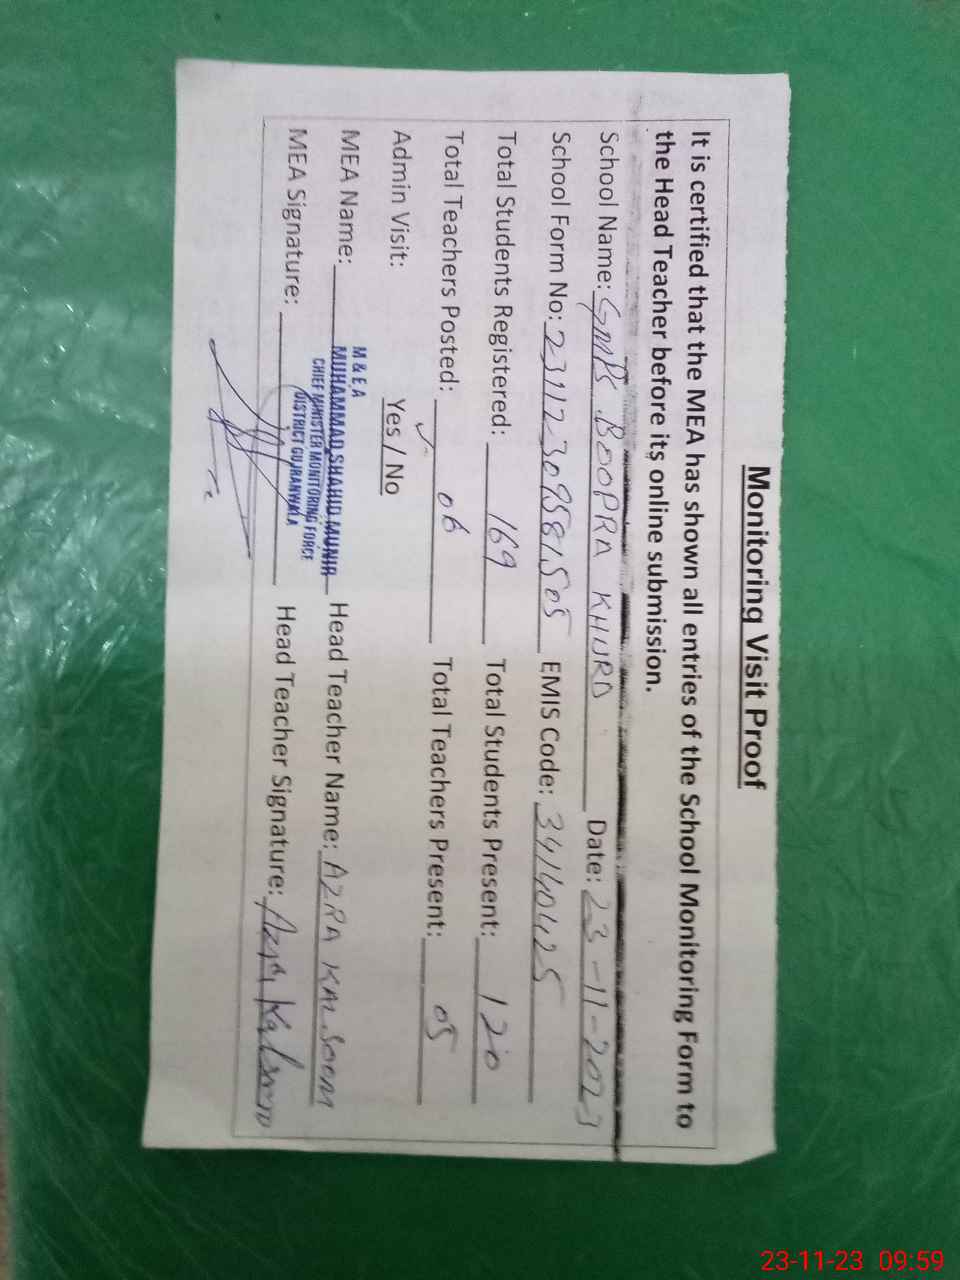 Monitoring Visit Proof
It is certified that the MEA has shown all entries of the School Monitoring Form to
the Head Teacher before its online submission.
School Name: GMPS BOOPRA KHURD Date: 23-11-2023
School Form No: 23112309581505 EMIS Code: 34140425
Total Students Registered: 169 Total Students Present: 120
Total Teachers Posted: 06 Total Teachers Present: 05
Admin Visit: Yes / No
M & E A
MEA Name: MUHAMMAD SHAHID MUNIR Head Teacher Name: AZRA KALSOOM
CHIEF MINISTER MONITORING FORCE
DISTRICT GUJRANWALA
MEA Signature: Head Teacher Signature: Azra Kalsoom
23-11-23 09:59